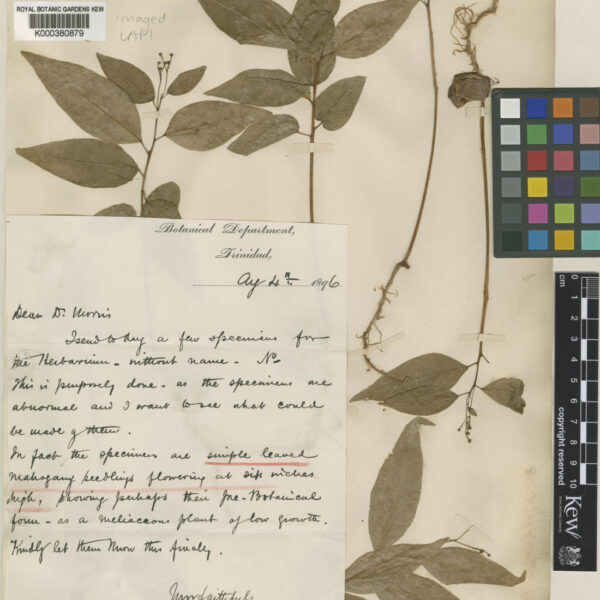 ROYAL BOTANIC GARDENS KEW
K000380879
imaged
LAPI
Botanical Department,
Trinidad,
Ag 4th 1896
Dear Dr. Morris
I send to day a few specimens for
the Herbarium - without name - No
This is purposely done - as the specimens are
abnormal and I want to see what could
be made of them.
In fact the specimens are simple leaved
mahogany seedlings flowering at six inches
high, showing perhaps their pre-Botanical
form - as a meliaceous plant of low growth.
Kindly let them know this finally.
Yours faithfully
0 1 2 3 4 5 6 7 8 9 10
cm
copyright reserved
KEW